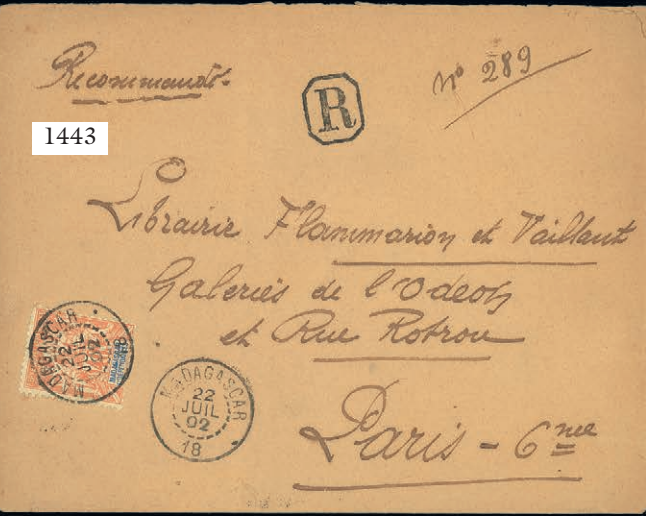 Recommandé
R
nº 289
1443
Librairie Flammarion et Vaillant
Galeries de l'Odeon
et Rue Rotrou
Paris - 6me
MADAGASCAR
22
JUIL
02
18
MADAGASCAR
22
JUIL
02
18